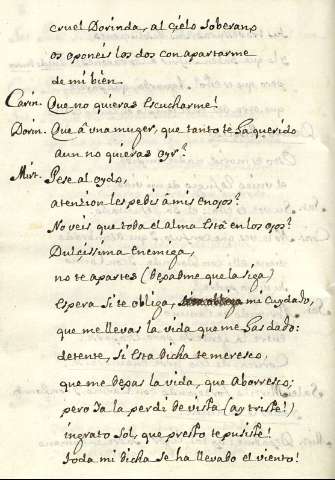 cruel Dorinda, al cielo soberano
os oponeis los dos con apartarme
de mi bien.
Carin. Que no quieras escucharme!
Dorin. Que â una muger, que tanto te ha querido
aun no quieras oyr?
Mirt. Pese al oydo,
atenzion les pedis â mis enojos?
No veis que toda el alma està en los ojos?
Dulcissima enemiga,
no te apartes (dexadme que la siga)
espera si te obliga, mi cuydado,
que me llevas la vida que me has dado:
detente, si esta dicha te meresco,
que me dexas la vida, que aborresco;
pero ya la perdi de vista (ay triste!)
ingrato sol, que presto te pusiste!
toda mi dicha se ha llevado el viento!